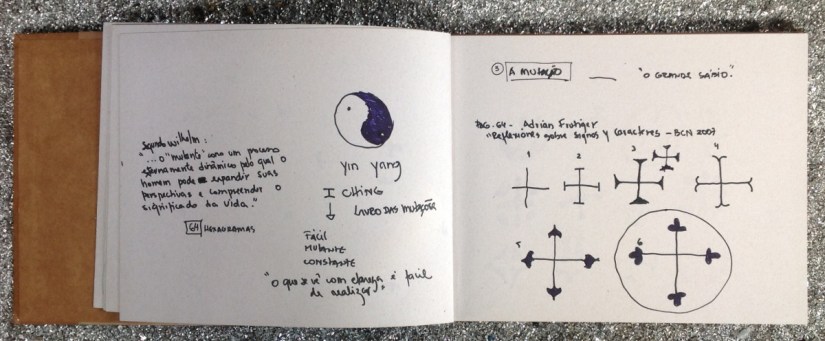 Segundo Wilhelm:
"...o "mutante" como um processo
eternamente dinâmico pelo qual o
homem pode expandir suas
perspectivas e compreender o
significado da vida."
64 HEXAGRAMAS
yin yang
I CHING
LIVRO DAS MUTAÇÕES
FÁCIL
MUTANTE
CONSTANTE
"o que se vê com clareza é fácil
de realizar"
5 A MUTAÇÃO — "O GRANDE SÁBIO."
PAG. 64 - Adrian Frutiger
"Reflexiones sobre signos y caracteres - BCN 2007
1 2 3 4
5 6